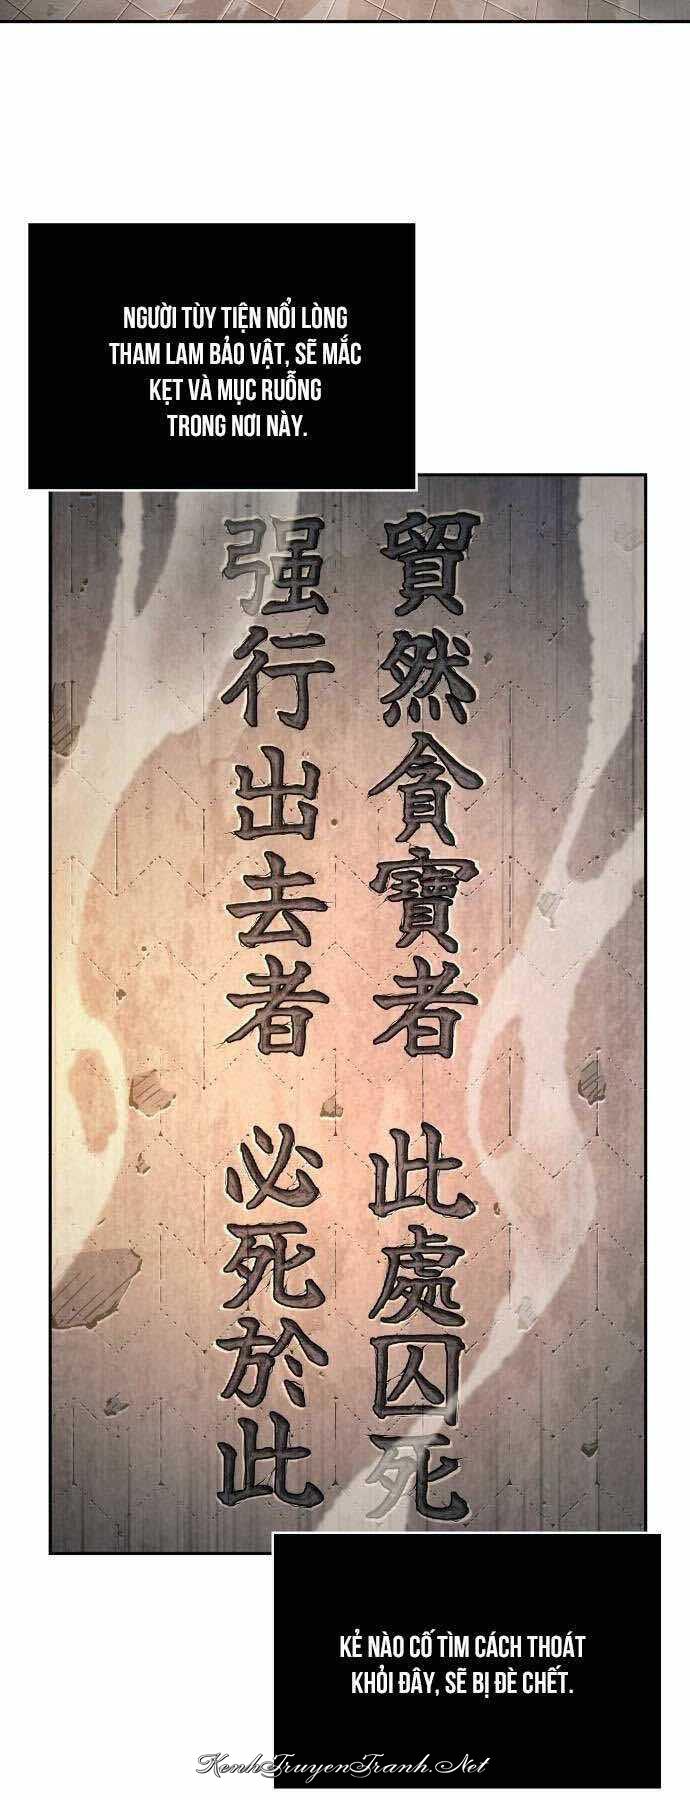 NGƯỜI TÙY TIỆN NỔI LÒNG
THAM LAM BẢO VẬT, SẼ MẮC
KẸT VÀ MỤC RUỖNG
TRONG NƠI NÀY.
貿然貪寶者 此處囚死
强行出去者 必死於此
KẺ NÀO CỐ TÌM CÁCH THOÁT
KHỎI ĐÂY, SẼ BỊ ĐÈ CHẾT.
KenhTruyenTranh.Net